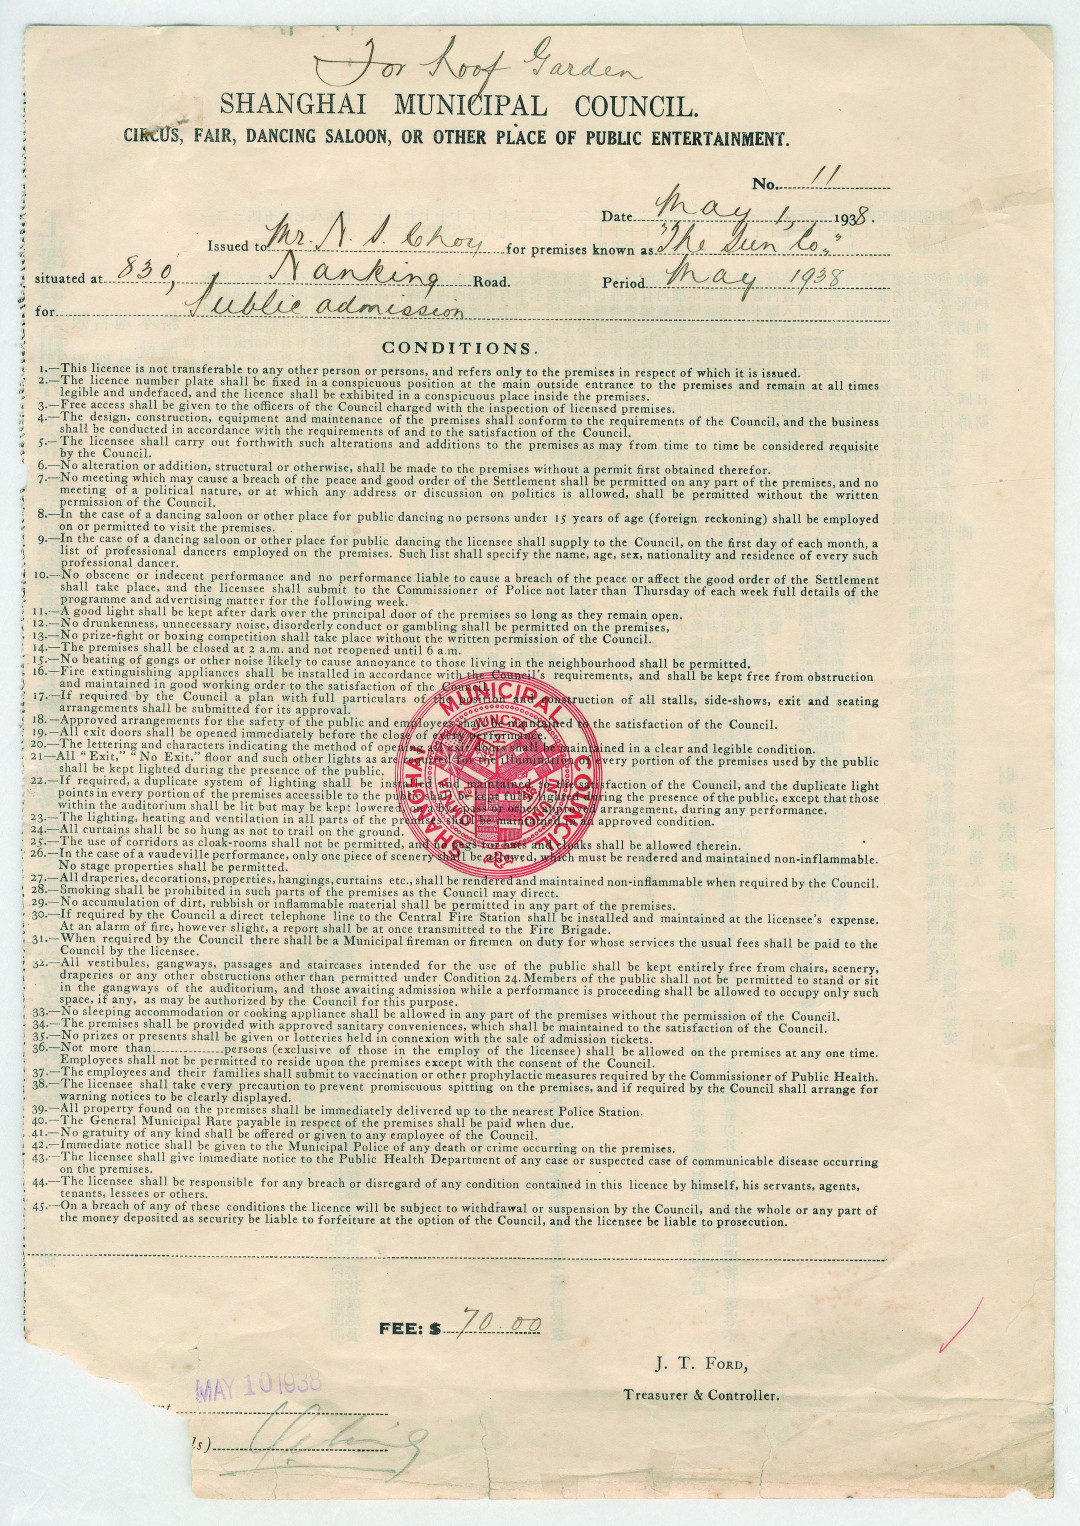 For Roof Garden
SHANGHAI MUNICIPAL COUNCIL.
CIRCUS, FAIR, DANCING SALOON, OR OTHER PLACE OF PUBLIC ENTERTAINMENT.
No. 11
Date May 1, 1938.
Issued to Mr. N. S. Choy for premises known as "The Sun Co.,"
situated at 830, Nanking Road. Period May 1938
for Public admission
CONDITIONS.
1.—This licence is not transferable to any other person or persons, and refers only to the premises in respect of which it is issued.
2.—The licence number plate shall be fixed in a conspicuous position at the main outside entrance to the premises and remain at all times
legible and undefaced, and the licence shall be exhibited in a conspicuous place inside the premises.
3.—Free access shall be given to the officers of the Council charged with the inspection of licensed premises.
4.—The design, construction, equipment and maintenance of the premises shall conform to the requirements of the Council, and the business
shall be conducted in accordance with the requirements of and to the satisfaction of the Council.
5.—The licensee shall carry out forthwith such alterations and additions to the premises as may from time to time be considered requisite
by the Council.
6.—No alteration or addition, structural or otherwise, shall be made to the premises without a permit first obtained therefor.
7.—No meeting which may cause a breach of the peace and good order of the Settlement shall be permitted on any part of the premises, and no
meeting of a political nature, or at which any address or discussion on politics is allowed, shall be permitted without the written
permission of the Council.
8.—In the case of a dancing saloon or other place for public dancing no persons under 15 years of age (foreign reckoning) shall be employed
on or permitted to visit the premises.
9.—In the case of a dancing saloon or other place for public dancing the licensee shall supply to the Council, on the first day of each month, a
list of professional dancers employed on the premises. Such list shall specify the name, age, sex, nationality and residence of every such
professional dancer.
10.—No obscene or indecent performance and no performance liable to cause a breach of the peace or affect the good order of the Settlement
shall take place, and the licensee shall submit to the Commissioner of Police not later than Thursday of each week full details of the
programme and advertising matter for the following week.
11.—A good light shall be kept after dark over the principal door of the premises so long as they remain open.
12.—No drunkenness, unnecessary noise, disorderly conduct or gambling shall be permitted on the premises,
13.—No prize-fight or boxing competition shall take place without the written permission of the Council.
14.—The premises shall be closed at 2 a.m. and not reopened until 6 a.m.
15.—No beating of gongs or other noise likely to cause annoyance to those living in the neighbourhood shall be permitted.
16.—Fire extinguishing appliances shall be installed in accordance with the Council's requirements, and shall be kept free from obstruction
and maintained in good working order to the satisfaction of the Council.
17.—If required by the Council a plan with full particulars of the position and construction of all stalls, side-shows, exit and seating
arrangements shall be submitted for its approval.
18.—Approved arrangements for the safety of the public and employees shall be maintained to the satisfaction of the Council.
19.—All exit doors shall be opened immediately before the close of every performance.
20.—The lettering and characters indicating the method of opening all exit doors shall be maintained in a clear and legible condition.
21—All "Exit," "No Exit," floor and such other lights as are required for the illumination of every portion of the premises used by the public
shall be kept lighted during the presence of the public.
22.—If required, a duplicate system of lighting shall be installed and maintained to the satisfaction of the Council, and the duplicate light
points in every portion of the premises accessible to the public shall be kept fully lighted during the presence of the public, except that those
within the auditorium shall be lit but may be kept lowered on a bye-pass or other approved arrangement, during any performance.
23.—The lighting, heating and ventilation in all parts of the premises shall be maintained in an approved condition.
24.—All curtains shall be so hung as not to trail on the ground.
25.—The use of corridors as cloak-rooms shall not be permitted, and no pegs for hats and cloaks shall be allowed therein.
26.—In the case of a vaudeville performance, only one piece of scenery shall be allowed, which must be rendered and maintained non-inflammable.
No stage properties shall be permitted.
27.—All draperies, decorations, properties, hangings, curtains etc., shall be rendered and maintained non-inflammable when required by the Council.
28.—Smoking shall be prohibited in such parts of the premises as the Council may direct.
29.—No accumulation of dirt, rubbish or inflammable material shall be permitted in any part of the premises.
30.—If required by the Council a direct telephone line to the Central Fire Station shall be installed and maintained at the licensee's expense.
At an alarm of fire, however slight, a report shall be at once transmitted to the Fire Brigade.
31.—When required by the Council there shall be a Municipal fireman or firemen on duty for whose services the usual fees shall be paid to the
Council by the licensee.
32.—All vestibules, gangways, passages and staircases intended for the use of the public shall be kept entirely free from chairs, scenery,
draperies or any other obstructions other than permitted under Condition 24. Members of the public shall not be permitted to stand or sit
in the gangways of the auditorium, and those awaiting admission while a performance is proceeding shall be allowed to occupy only such
space, if any, as may be authorized by the Council for this purpose.
33.—No sleeping accommodation or cooking appliance shall be allowed in any part of the premises without the permission of the Council.
34.—The premises shall be provided with approved sanitary conveniences, which shall be maintained to the satisfaction of the Council.
35.—No prizes or presents shall be given or lotteries held in connexion with the sale of admission tickets.
36.—Not more than persons (exclusive of those in the employ of the licensee) shall be allowed on the premises at any one time.
Employees shall not be permitted to reside upon the premises except with the consent of the Council.
37.—The employees and their families shall submit to vaccination or other prophylactic measures required by the Commissioner of Public Health.
38.—The licensee shall take every precaution to prevent promiscuous spitting on the premises, and if required by the Council shall arrange for
warning notices to be clearly displayed.
39.—All property found on the premises shall be immediately delivered up to the nearest Police Station.
40.—The General Municipal Rate payable in respect of the premises shall be paid when due.
41.—No gratuity of any kind shall be offered or given to any employee of the Council.
42.—Immediate notice shall be given to the Municipal Police of any death or crime occurring on the premises.
43.—The licensee shall give immediate notice to the Public Health Department of any case or suspected case of communicable disease occurring
on the premises.
44.—The licensee shall be responsible for any breach or disregard of any condition contained in this licence by himself, his servants, agents,
tenants, lessees or others.
45.—On a breach of any of these conditions the licence will be subject to withdrawal or suspension by the Council, and the whole or any part of
the money deposited as security be liable to forfeiture at the option of the Council, and the licensee be liable to prosecution.
SHANGHAI MUNICIPAL COUNCIL
OMNIA JUNCTA IN UNO
FEE: $ 70.00
J. T. FORD,
Treasurer & Controller.
MAY 10 1938
ls)